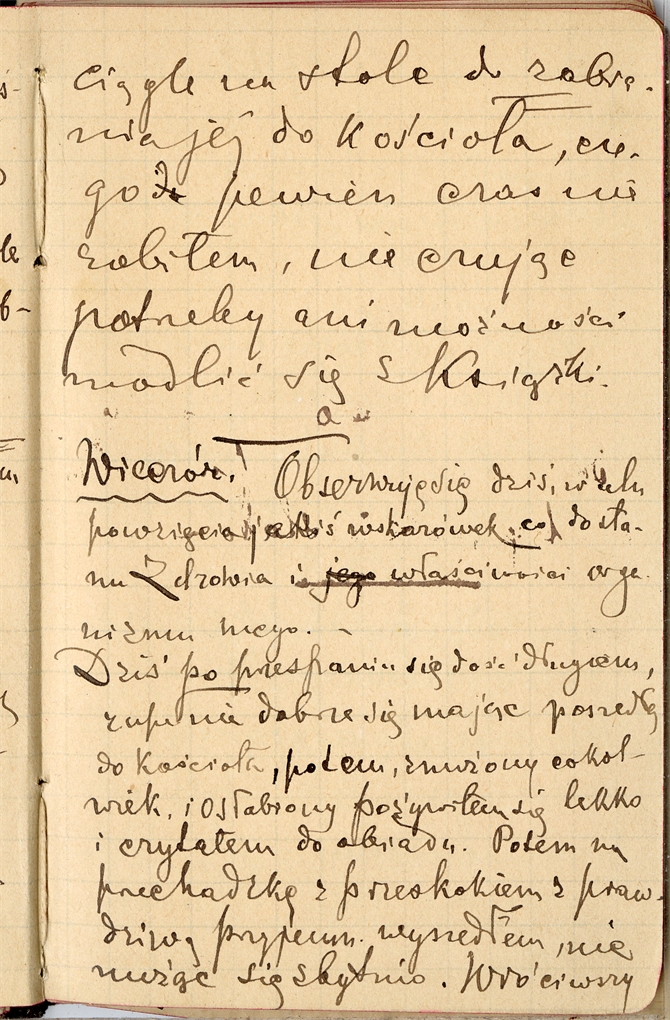 ciągle na stole do zabra-
nia jéj do kościoła, cze-
go do pewien czas nie
robiłem, nie czując
potrzeby ani możności
modlić się z książki.
Wieczór. Obserwuję się dziś, w celu
powzięcia jakiś wskazówek, co do sta-
nu zdrowia i jego właściwości orga-
nizmu mego. –
Dziś po przespaniu się dość długiem,
zupełnie dobrze się mając poszedłem
do kościoła, potem, znużony cokol-
wiek, i osłabiony pożywiłem się lekko
i czytałem do obiadu. Potem na
przechadzkę z przeskokiem z praw-
dziwą przyjemn. wyszedłem, nie
nużąc się zbytnio. Wróciwszy